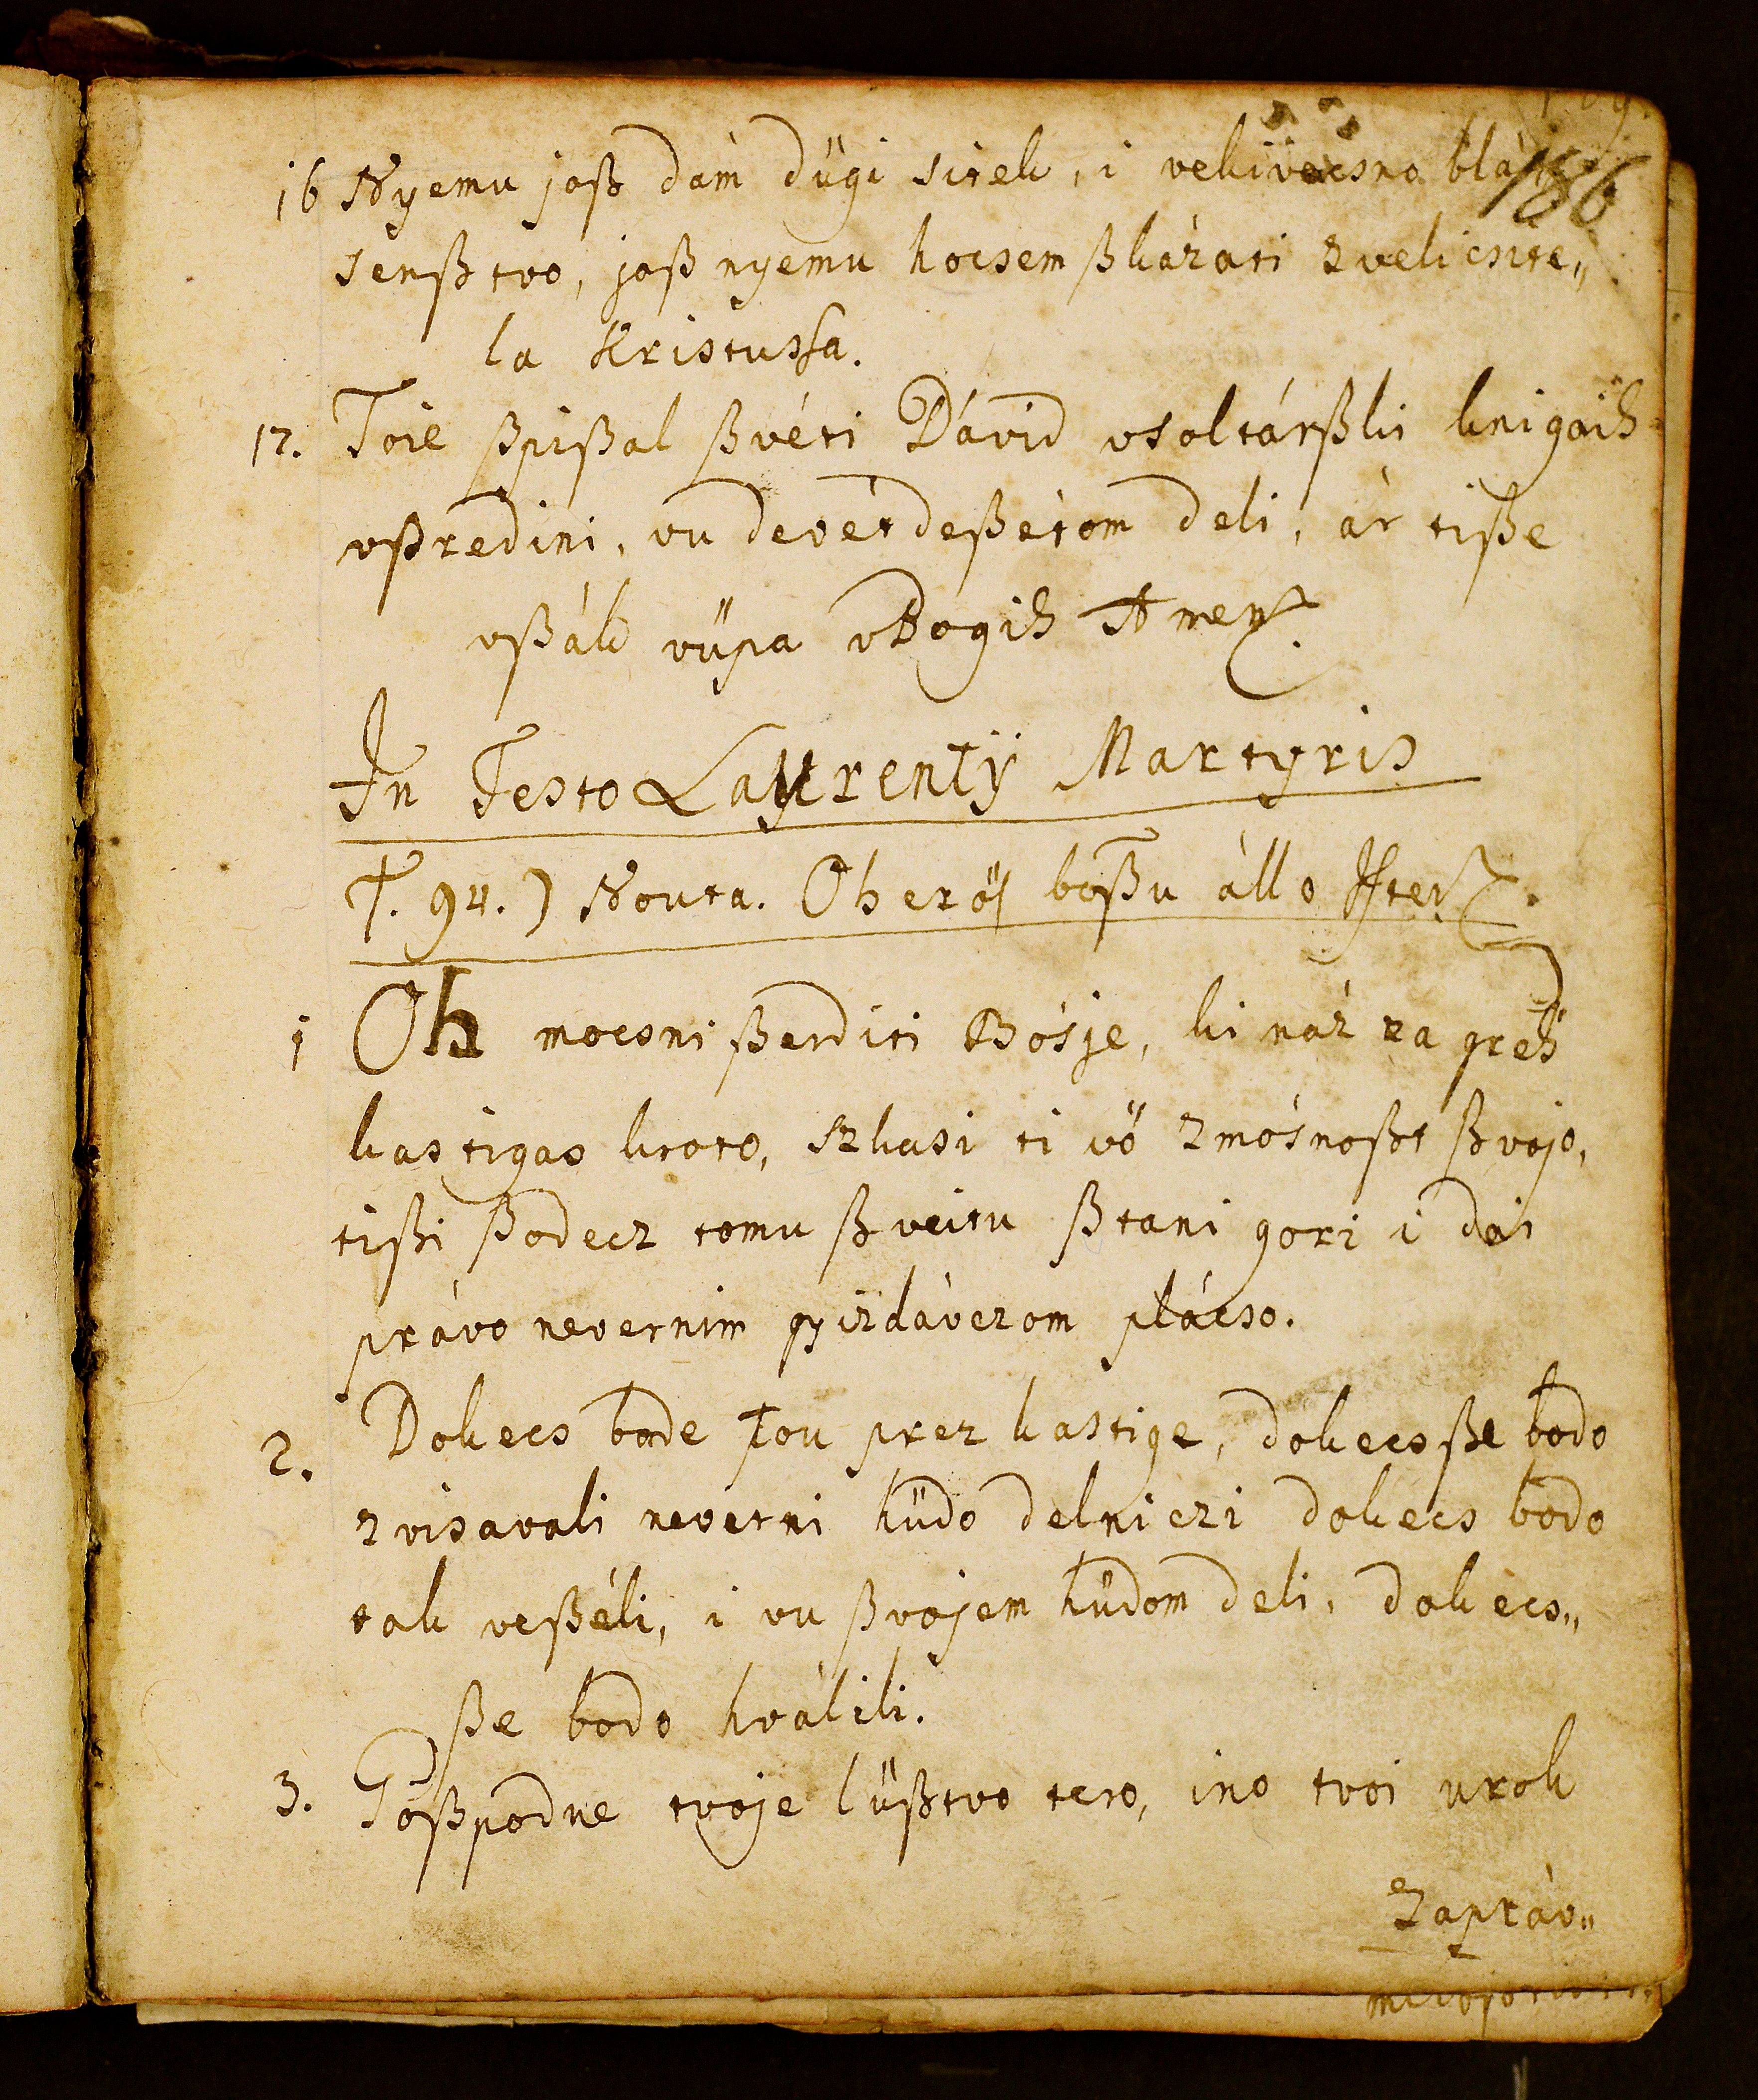 186
16 Nyemu joß dám dügi sitek, i vekivecsno blá
senßtvo, joß nyemu hocsem ßkázati zvelicsite„
la Kristussa.
17. Toie ßpißal ßvéti Dávid vsoltárßki knigaih
vßredini, vu devét deßétom deli, ár tiße
vßák vüpa vBogih Amen.
In Festo Laurentÿ Martyris
T. 94.) Nouta. Oh erös boßu álló Isten.
1 Oh mocsni ßerditi Bósje, ki náz za greh
kastigas kroto, Szkasi ti vö zmósnoßt ßvojo,
tißi ßodecz tomu ßveitu ßtani gori i dai
právo nevernim gyizdávczom plácso.
2. Dokecs bode tou prez kastige, dokecs ße bodo
zvisavali neverni hüdo delniczi dokecs bodo
tak veßéli, i vu ßvojem hüdom deli, dokecs„
ße bodo hválili.
3. Goßpodne tvoje lüßtvo tero, ino tvoi urok
Zapráv„